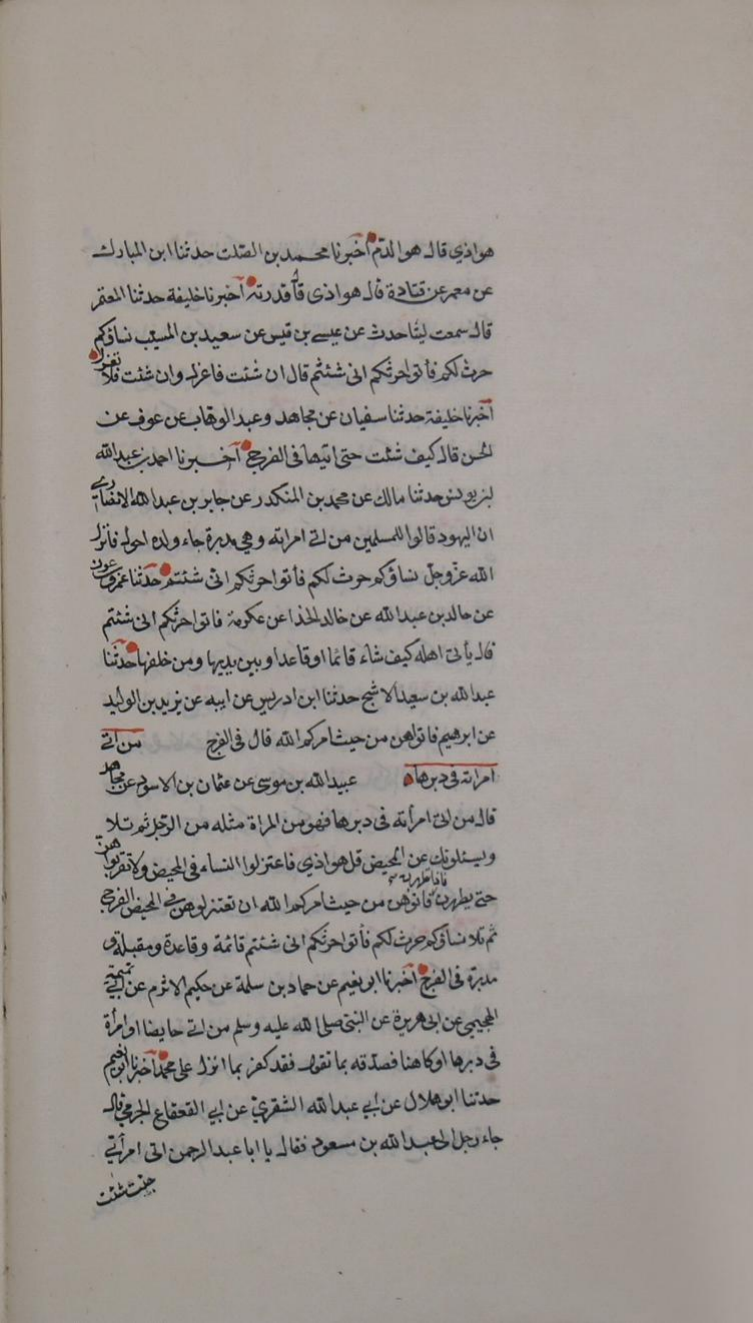 هو اذي قال هو الدم أخبرنا محمد بن الصلت حدثنا ابن المبارك
عن معمر عن قتادة قال هو اذى قال قدرته أخبرنا خليفة حدثنا المعتمر
قال سمعت ليثا حدث عن عيسى بن قيس عن سعيد بن المسيب نساؤكم
حرث لكم فأتوا حرثكم انى شئتم قال ان شئت فاعزل وان شئت فلا تعزل
أخبرنا خليفة حدثنا سفيان عن مجاهد وعبد الوهاب عن عوف عن
الحسن قال كيف شئت حتى اتيها فى الفرج أخبرنا احمد بن عبد الله
بن يونس حدثنا مالك عن محمد بن المنكدر عن جابر بن عبد الله الانصارى
ان اليهود قالوا للمسلمين من اتى امراته وهي مدبرة جاء ولده احول فانزل
الله عز وجل نساؤكم حرث لكم فأتوا حرثكم انى شئتم حدثنا عمرو بن عون
عن خالد بن عبد الله عن خالد الحذا عن عكرمة فاتوا حرثكم انى شئتم
قال يأتى اهله كيف شاء قائما او قاعدا وبين يديها ومن خلفها حدثنا
عبد الله بن سعيد الاشج حدثنا ابن ادريس عن ابيه عن يزيد بن الوليد
عن ابرهيم فاتوهن من حيث امركم الله قال فى الفرج من اتى
امراته فى دبرها عبيد الله بن موسى عن عثمان بن الاسود عن مجاهد
قال من اتى امرأته فى دبرها فهو من المراة مثله من الرجل ثم تلا
ويسئلونك عن المحيض قل هو اذي فاعتزلوا النساء فى المحيض ولا تقربوهن
حتى يطهرن فاذا تطهرن فاتوهن من حيث امركم الله ان تعتزلوهن فى المحيض الفرج
ثم تلا نساؤكم حرث لكم فأتوا حرثكم انى شئتم قائمة وقاعدة ومقبلة و
مدبرة فى الفرج أخبرنا ابو نعيم عن حماد بن سلمة عن حكيم الاثرم عن ابي تميمة
الهجيمي عن ابى هريرة عن النبى صلى الله عليه وسلم من اتى حايضا او امرأة
فى دبرها او كاهنا فصدقه بما تقول فقد كفر بما انزل على محمد أخبرنا ابو نعيم
حدثنا ابو هلال عن ابي عبد الله الشقري عن ابي القعقاع الجرمي قال
جاء رجل الى عبد الله بن مسعود فقال يا ابا عبد الرحمن اتى امرأتي
شئت